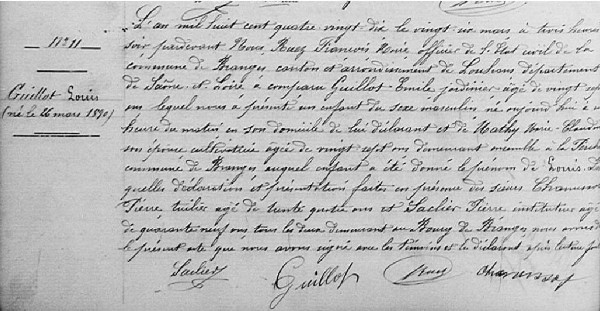 1891
Guillot Louis
(né le 26 mars 1890)
L'an mil huit cent quatre vingt dix le vingt six mars à trois heures
soir pardevant Nous, Ruey François Maire officier de l'Etat civil de la
commune de Branges canton et arrondissement de Louhans département
de Saône et Loire a comparu Guillot Emile jardinier âgé de vingt sept
ans lequel nous a présenté un enfant du sexe masculin né aujourd'hui à
heure du matin en son domicile de lui déclarant et de Mathy Claudine
son épouse cultivatrice âgée de vingt sept ans demeurant ensemble à
commune de Branges, auquel enfant a été donné le prénom de Louis. Les
quelles déclaration et présentation faites en présence des sieurs
Pierre tuilier âgé de trente quatre ans et Saclier Pierre instituteur âgé
de quarante neuf ans tous les deux demeurant au Bourg de Branges, nous avons
le présent acte que nous avons signé avec les témoins et le déclarant, après lecture faite
Saclier Guillot Ruey